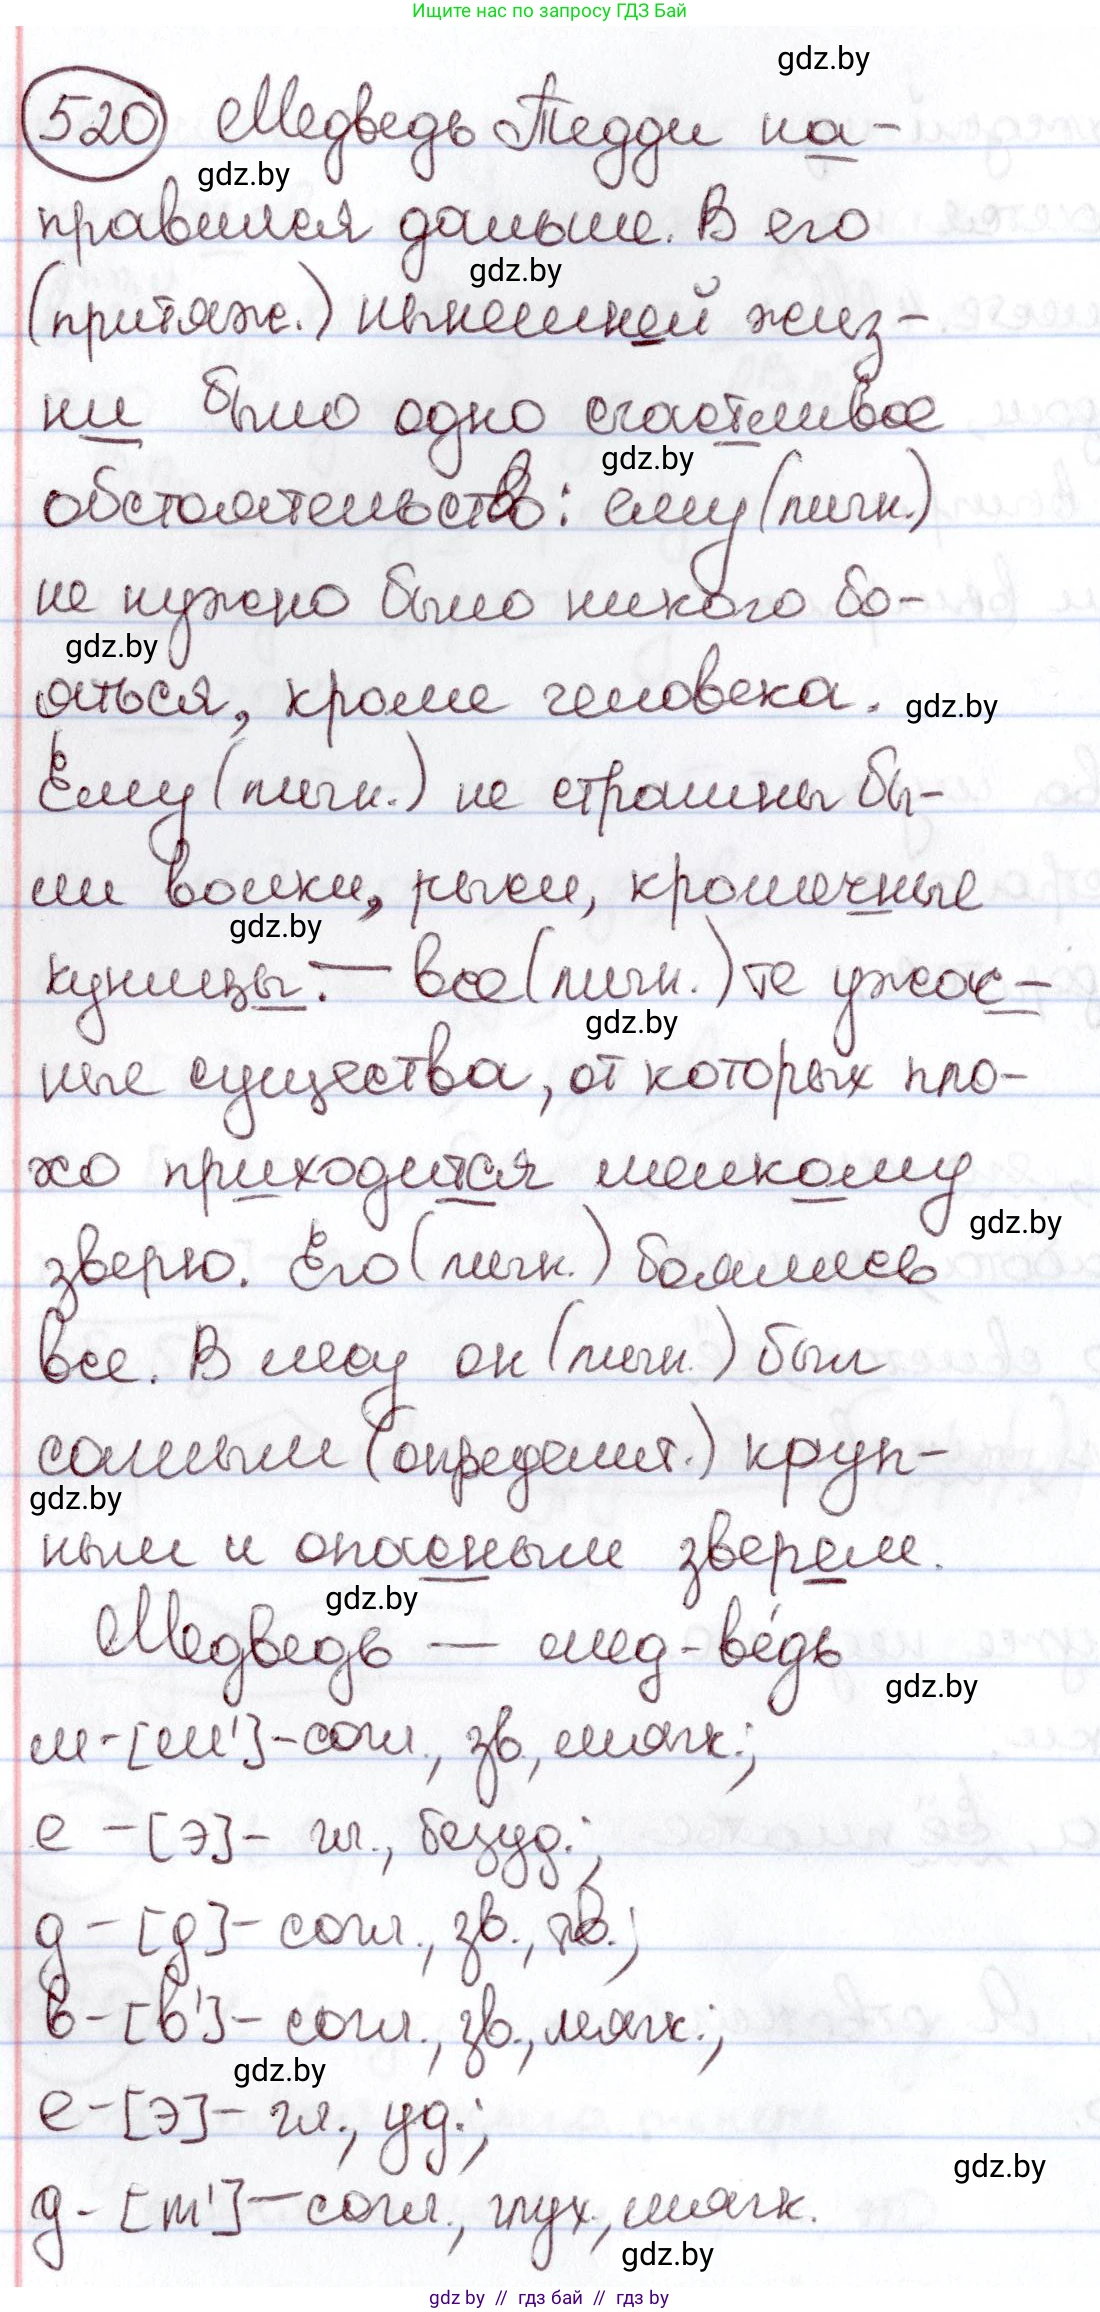 Ищите нас по запросу ГДЗ Бай
gdz.by
520 Медведь Тедди на-
gdz.by
правился дальше. В его
gdz.by
(притяж.) нынешней жиз-
ни было одно счастливое
gdz.by
обстоятельство: ему (личн.)
не нужно было никого бо-
gdz.by
яться, кроме человека.
gdz.by
Ему (личн.) не страшны бы-
ли волки, рыси, кромечные
gdz.by
куницы. — все (личн.) те ужас-
gdz.by
ные существа, от которых пло-
хо приходится мелкому
gdz.by
зверю. Его (личн.) боялись
все. В лесу он (личн.) был
самым (определит.) круп-
gdz.by
ным и опасным зверем.
gdz.by
Медведь — мед-ве́дь
gdz.by
м-[м']-согл., зв., мягк.;
е -[э]- гл., безуд.;
д -[д]- согл., зв., тв.;
в-[в']- согл., зв., мягк.;
gdz.by
е-[э]- гл., уд.;
gdz.by
д-[т']-согл., глух., мягк.
gdz.by
gdz.by // гдз бай // гдз by